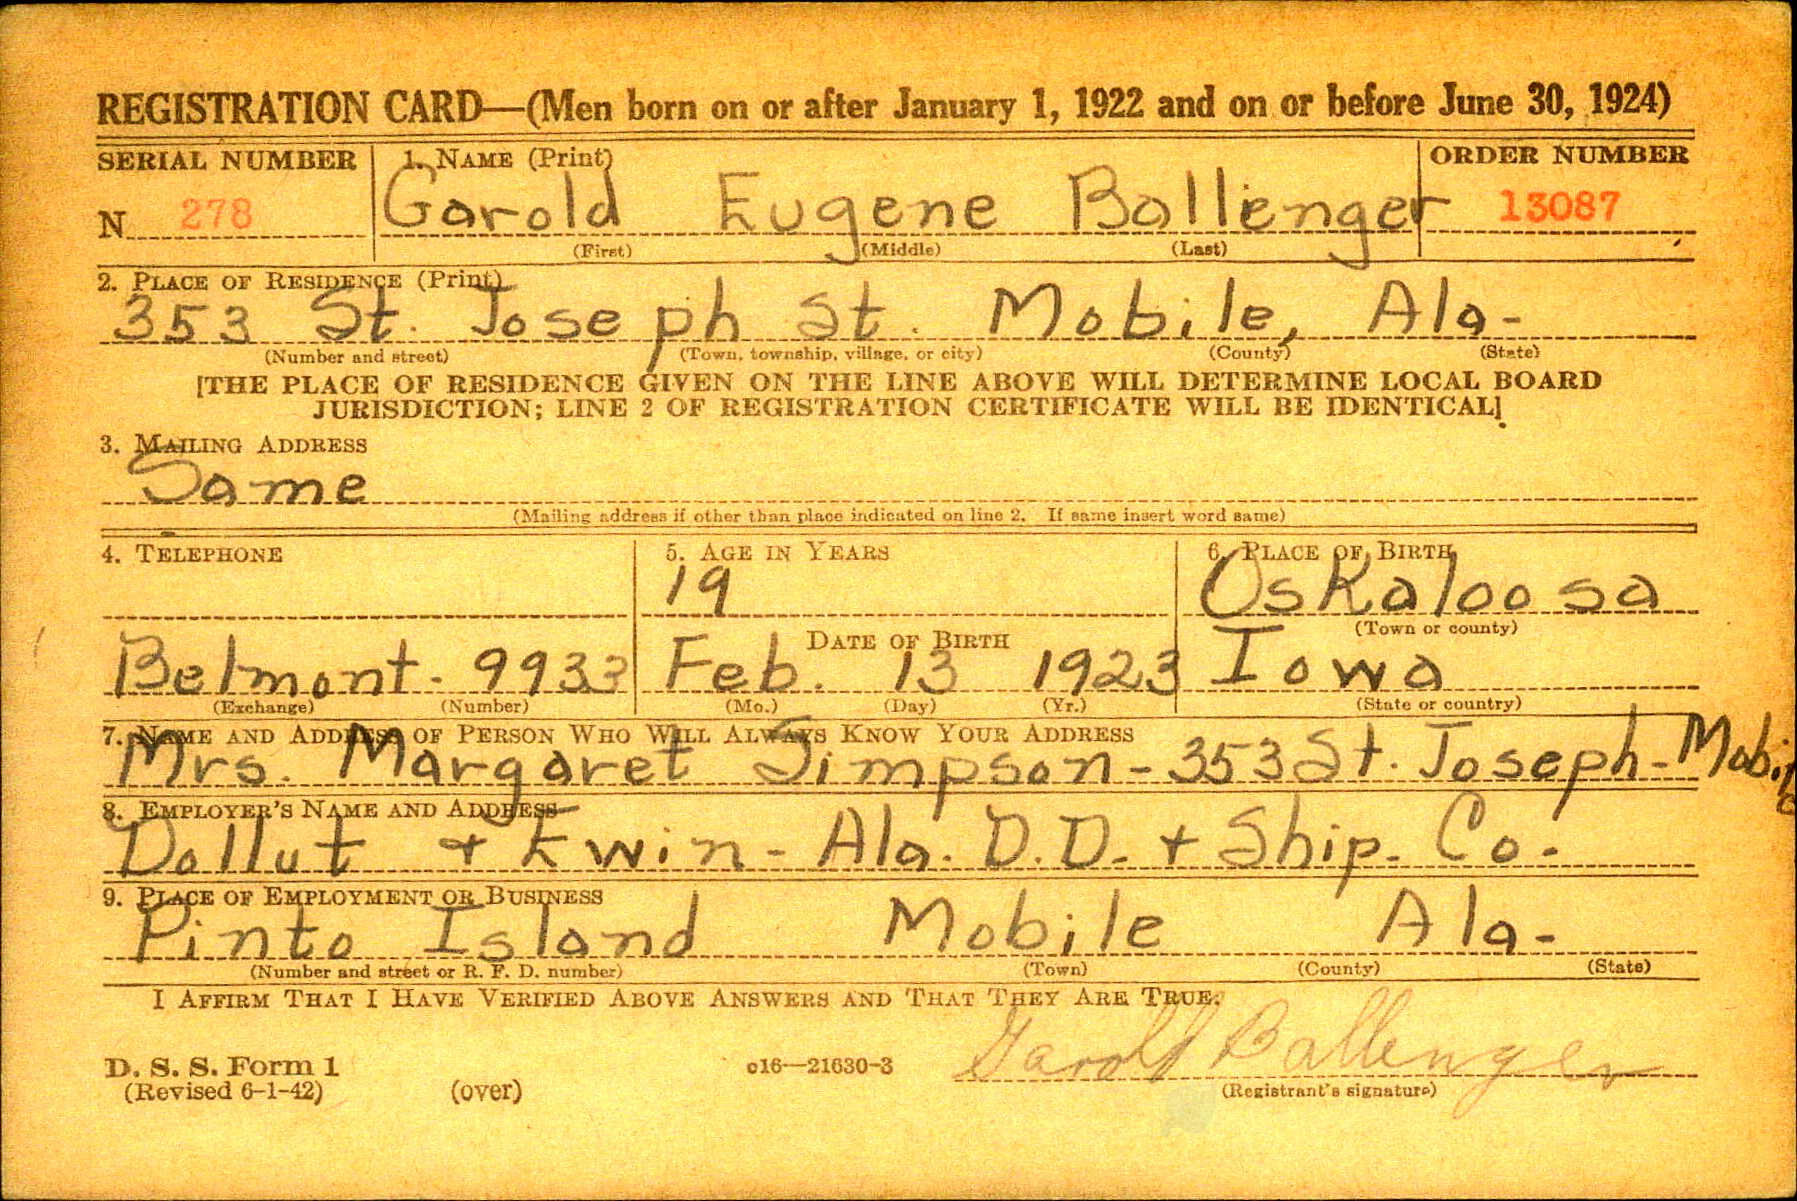 REGISTRATION CARD—(Men born on or after January 1, 1922 and on or before June 30, 1924)
SERIAL NUMBER 1. NAME (Print) ORDER NUMBER
N 278 Garold Eugene Ballenger 13087
(First) (Middle) (Last)
2. PLACE OF RESIDENCE (Print)
353 St. Joseph St. Mobile, Ala-
(Number and street) (Town, township, village, or city) (County) (State)
[THE PLACE OF RESIDENCE GIVEN ON THE LINE ABOVE WILL DETERMINE LOCAL BOARD
JURISDICTION; LINE 2 OF REGISTRATION CERTIFICATE WILL BE IDENTICAL]
3. MAILING ADDRESS
Same
(Mailing address if other than place indicated on line 2. If same insert word same)
4. TELEPHONE 5. AGE IN YEARS 6. PLACE OF BIRTH
19 Oskaloosa
DATE OF BIRTH (Town or county)
Belmont- 9933 Feb. 13 1923 Iowa
(Exchange) (Number) (Mo.) (Day) (Yr.) (State or country)
7. NAME AND ADDRESS OF PERSON WHO WILL ALWAYS KNOW YOUR ADDRESS
Mrs. Margaret Simpson- 353 St. Joseph- Mobile
8. EMPLOYER'S NAME AND ADDRESS
Dollut + Ewin- Ala. D.D. + Ship. Co.
9. PLACE OF EMPLOYMENT OR BUSINESS
Pinto Island Mobile Ala-
(Number and street or R. F. D. number) (Town) (County) (State)
I AFFIRM THAT I HAVE VERIFIED ABOVE ANSWERS AND THAT THEY ARE TRUE.
Garold Ballenger
D. S. S. Form 1 c16—21630-3
(Revised 6-1-42) (over) (Registrant's signature)